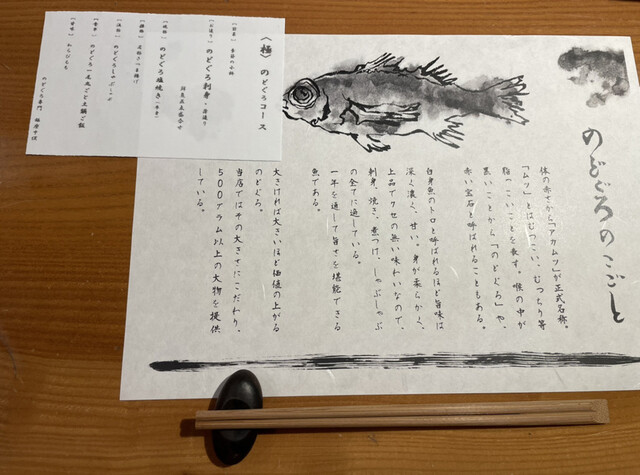 のどぐろのこごと
体の赤さから「アカムツ」が正式名称。
「ムツ」とはむつっこい、むつちり等
脂っこいことを表す。喉の中が
黒いことから「のどぐろ」や、
赤い宝石と呼ばれることもある。
白身魚のトロと呼ばれるほど旨味は
深く濃く、甘い。身が柔らかく、
上品でクセの無い味わいなので、
刺身、焼き、煮つけ、しゃぶしゃぶ
の全てに適している。
一年を通して旨さを堪能できる
魚である。
大きければ大きいほど価値の上がる
のどぐろ。
当店ではその大きさにこだわり、
500グラム以上の大物を提供
している。
〈極〉 のどぐろコース
【前菜】 季節の小鉢
【お造り】 のどぐろ刺身・お造り
【焼物】 のどぐろ塩焼き
【鍋物】 のどぐろしゃぶしゃぶ
【食事】 のどぐろ一尾丸ごと土鍋ご飯
【甘味】 わらびもち
のどぐろ専門